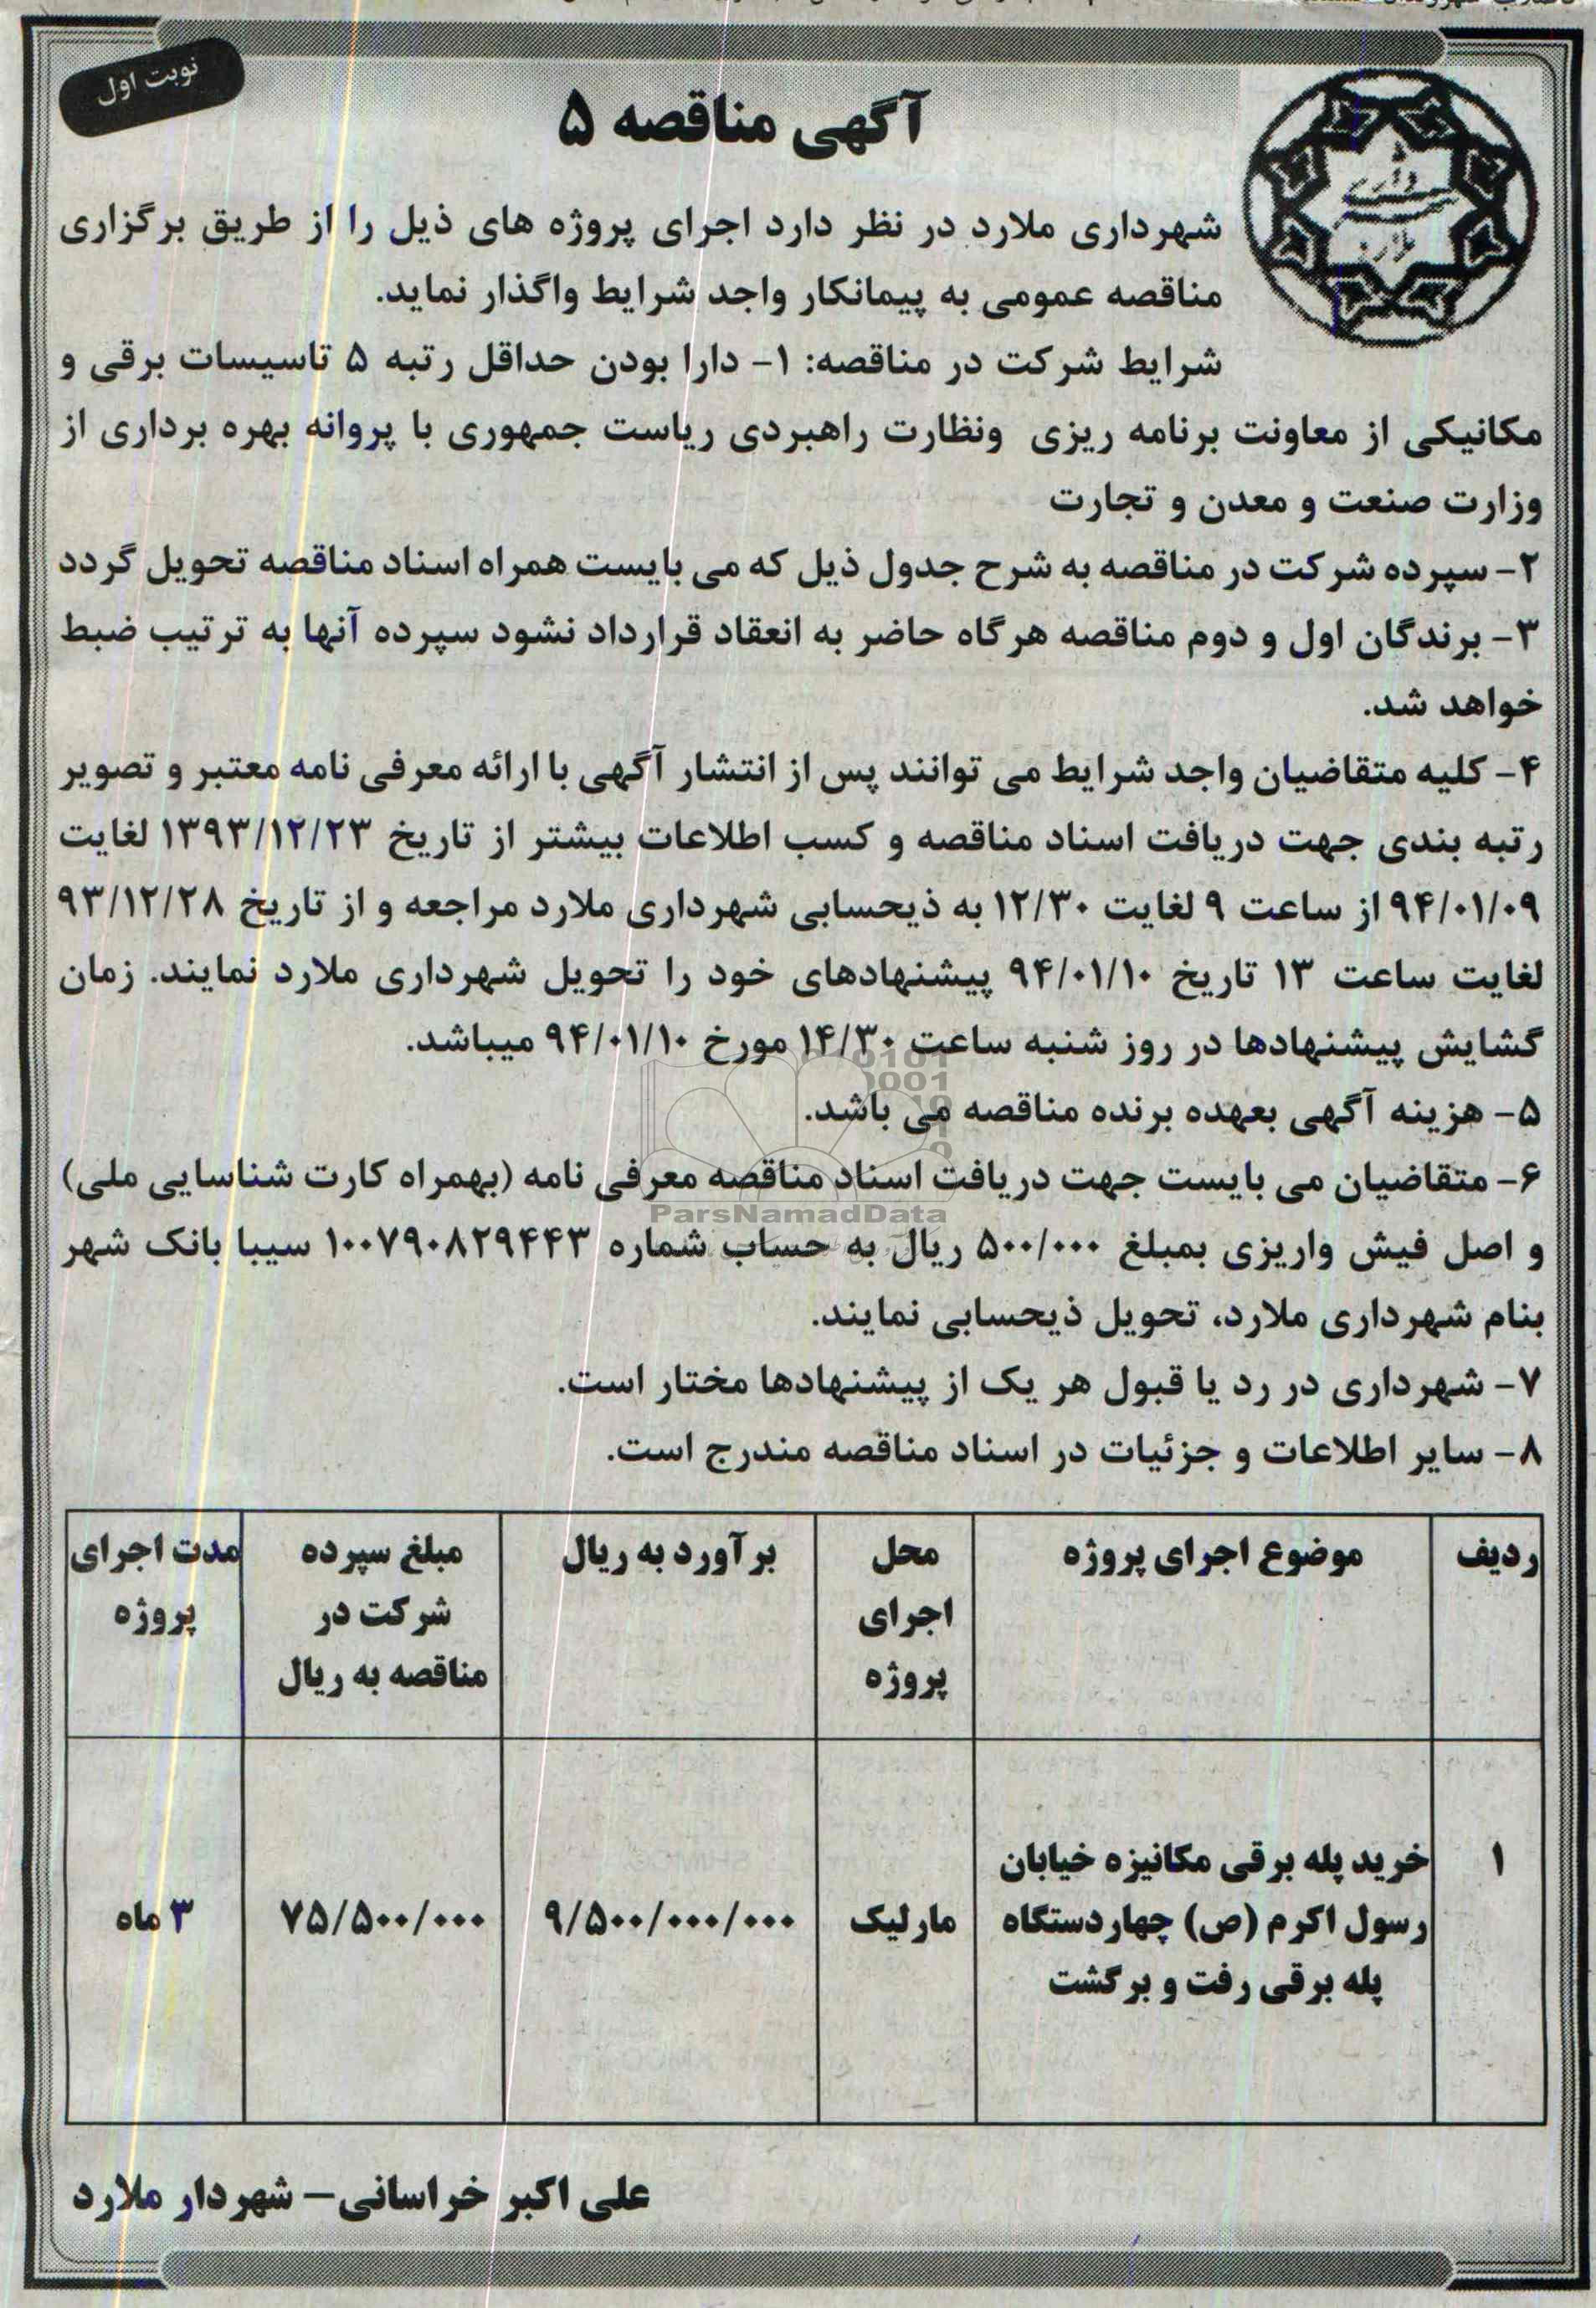 نوبت اول
آگهی مناقصه ۵
شهرداری ملارد در نظر دارد اجرای پروژه های ذیل را از طریق برگزاری
مناقصه عمومی به پیمانکار واجد شرایط واگذار نماید.
شرایط شرکت در مناقصه: ۱- دارا بودن حداقل رتبه ۵ تاسیسات برقی و
مکانیکی از معاونت برنامه ریزی ونظارت راهبردی ریاست جمهوری با پروانه بهره برداری از
وزارت صنعت و معدن و تجارت
۲- سپرده شرکت در مناقصه به شرح جدول ذیل که می بایست همراه اسناد مناقصه تحویل گردد
۳- برندگان اول و دوم مناقصه هرگاه حاضر به انعقاد قرارداد نشود سپرده آنها به ترتیب ضبط
خواهد شد.
۴- کلیه متقاضیان واجد شرایط می توانند پس از انتشار آگهی با ارائه معرفی نامه معتبر و تصویر
رتبه بندی جهت دریافت اسناد مناقصه و کسب اطلاعات بیشتر از تاریخ ۱۳۹۳/۱۲/۲۳ لغایت
۹۴/۰۱/۰۹ از ساعت ۹ لغایت ۱۲/۳۰ به ذیحسابی شهرداری ملارد مراجعه و از تاریخ ۹۳/۱۲/۲۸
لغایت ساعت ۱۳ تاریخ ۹۴/۰۱/۱۰ پیشنهادهای خود را تحویل شهرداری ملارد نمایند. زمان
گشایش پیشنهادها در روز شنبه ساعت ۱۴/۳۰ مورخ ۹۴/۰۱/۱۰ میباشد.
۵- هزینه آگهی بعهده برنده مناقصه می باشد.
۶- متقاضیان می بایست جهت دریافت اسناد مناقصه معرفی نامه (بهمراه کارت شناسایی ملی)
ParsNamadData
و اصل فیش واریزی بمبلغ ۵۰۰/۰۰۰ ریال به حساب شماره ۱۰۰۷۹۰۸۲۹۴۴۳ سیبا بانک شهر
بنام شهرداری ملارد، تحویل ذیحسابی نمایند.
۷- شهرداری در رد یا قبول هر یک از پیشنهادها مختار است.
۸- سایر اطلاعات و جزئیات در اسناد مناقصه مندرج است.
ردیف
موضوع اجرای پروژه
محل
اجرای
پروژه
برآورد به ریال
مبلغ سپرده
شرکت در
مناقصه به ریال
مدت اجرای
پروژه
۱
خرید پله برقی مکانیزه خیابان
رسول اکرم (ص) چهاردستگاه
پله برقی رفت و برگشت
مارلیک
۹/۵۰۰/۰۰۰/۰۰۰
۷۵/۵۰۰/۰۰۰
۳ ماه
علی اکبر خراسانی- شهردار ملارد